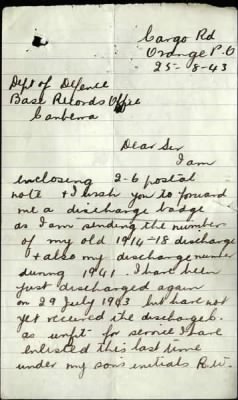 Cargo Rd
Orange P.O
25-8-43
Dept of Defence
Base Records Office
Canberra
Dear Sir
I am
enclosing 2-6 postal
note & I wish you to forward
me a discharge badge
as I am sending the number
of my old 1914-18 discharge
& also my discharge number
during 1941. I have been
just discharged again
on 29 July 1943 but have not
yet received the discharge.
as unfit for service I have
enlisted this last time
under my sons initials R.W.